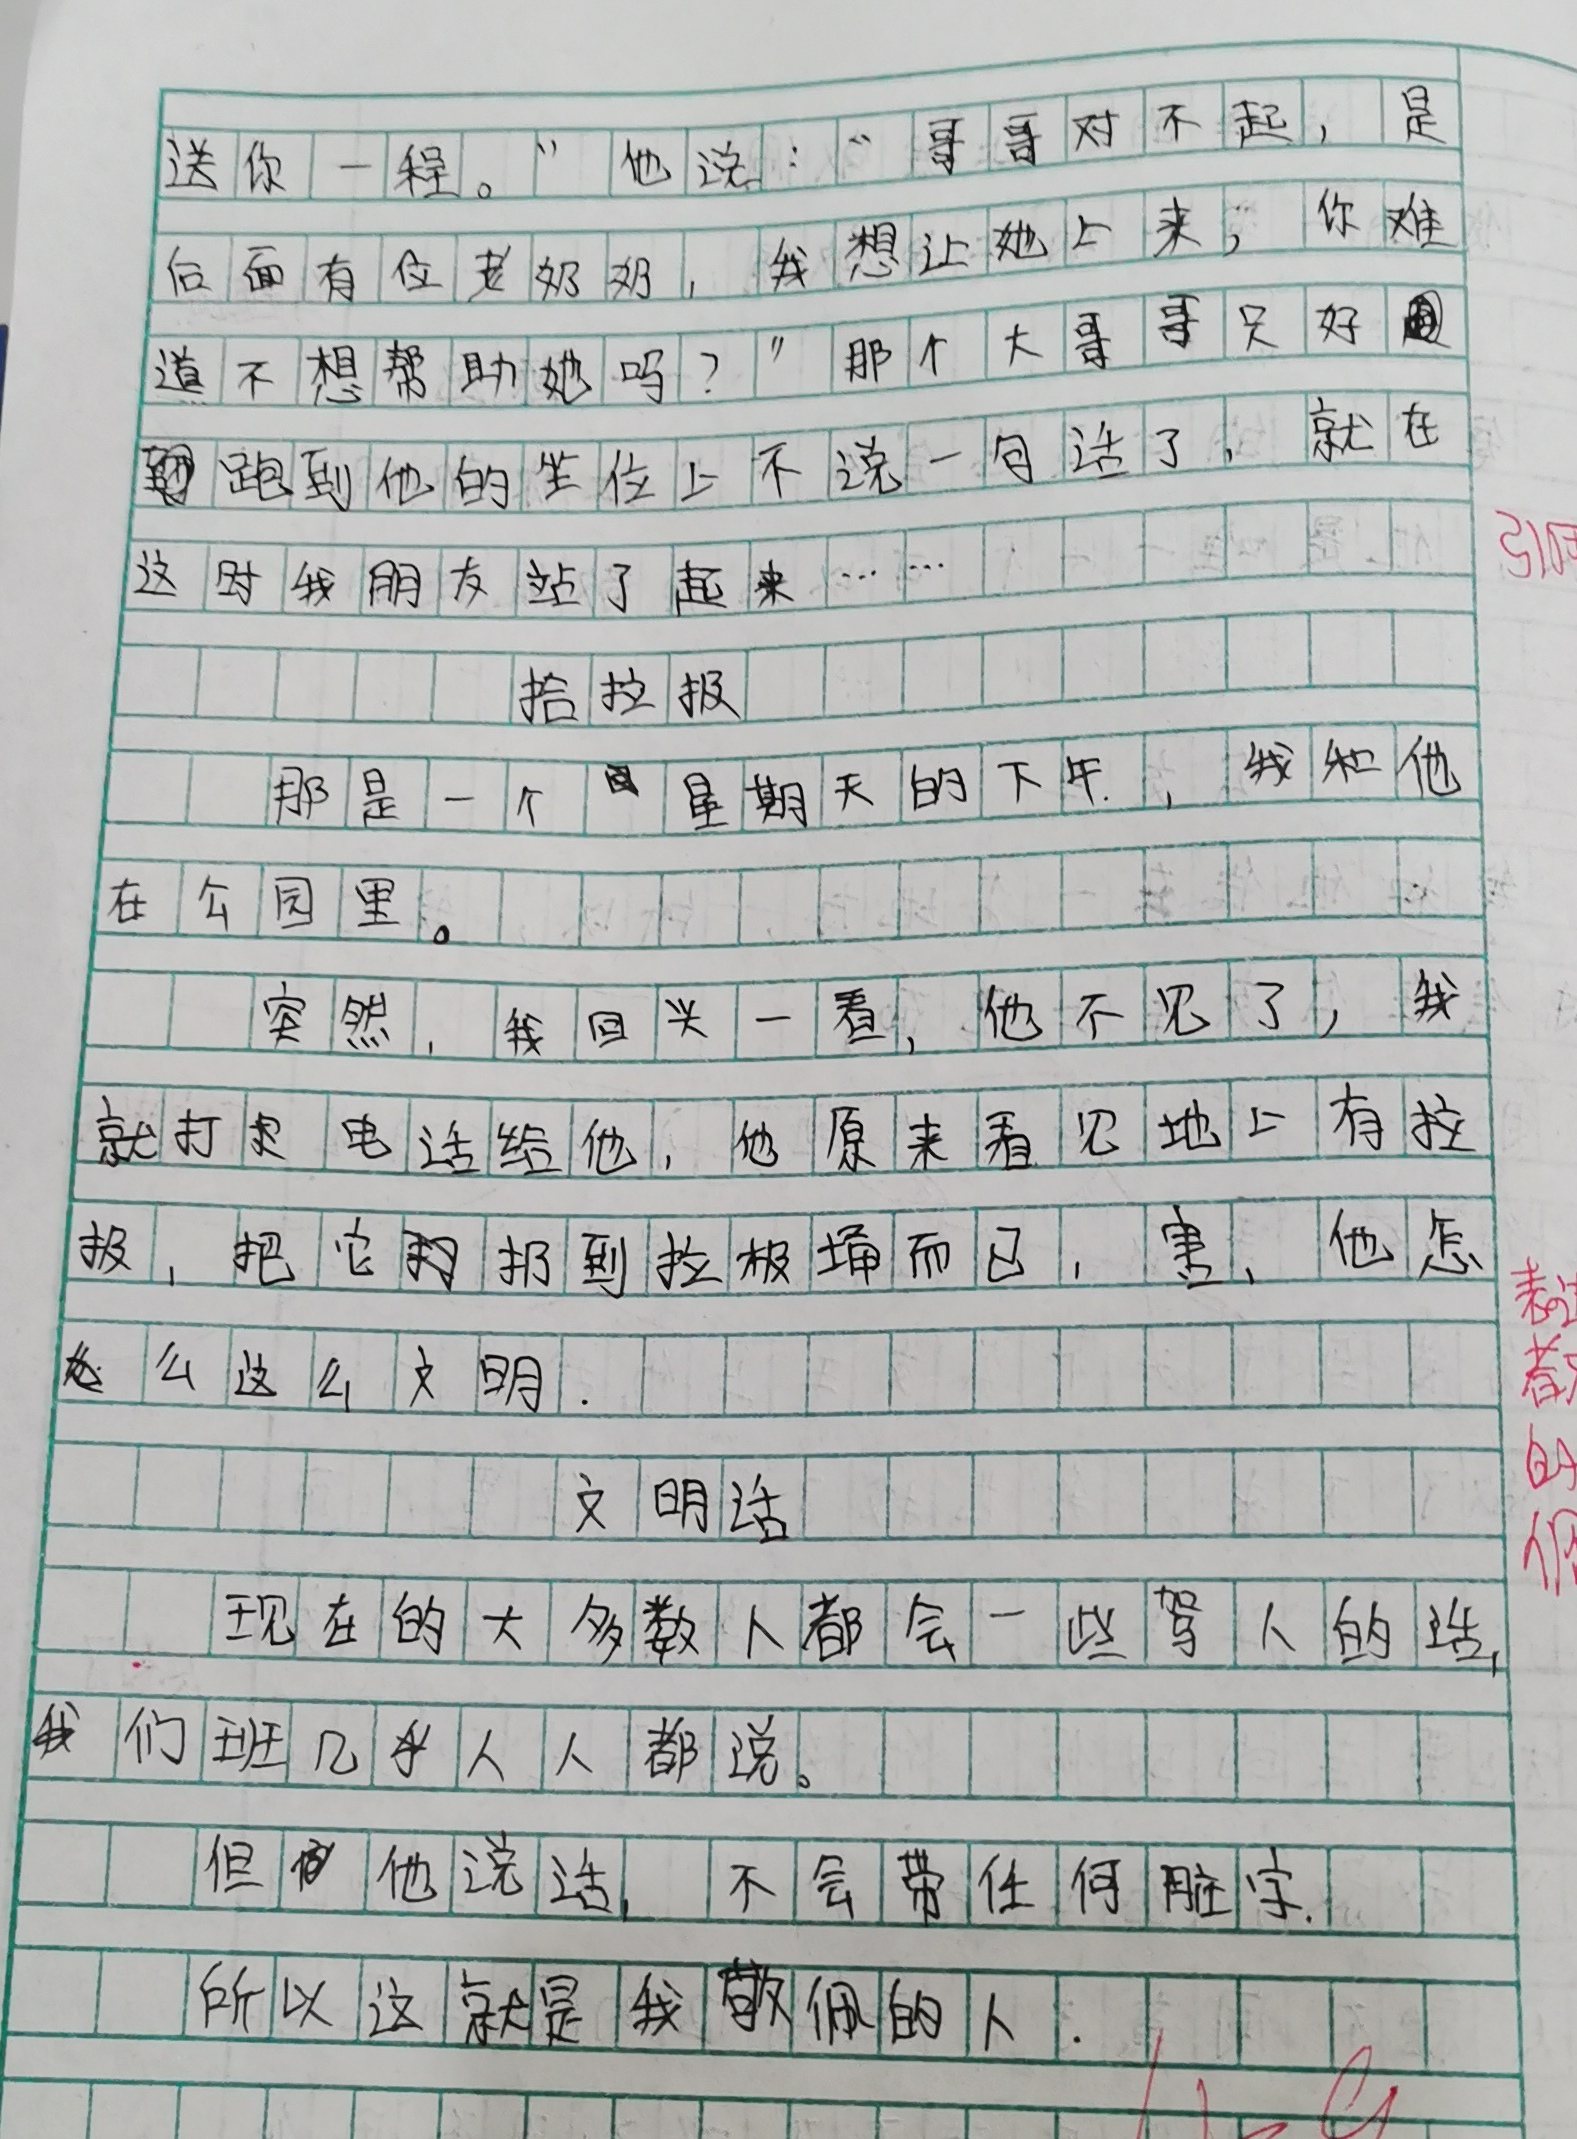 送你一程。”他说：“哥哥对不起，是
后面有位老奶奶，我想让她上来，你难
道不想帮助她吗？”那个大哥哥只好
跑到他的坐位上不说一句话了，就在
这时我朋友站了起来……
拾拉报
那是一个星期天的下午，我和他
在公园里。
突然，我回头一看，他不见了，我
就打电话给他，他原来看见地上有拉
报，把它扔到拉极埇而已，害，他怎
么这么文明.
文明话
现在的大多数人都会一些骂人的话,
我们班几乎人人都说。
但他说话，不会带任何脏字.
所以这就是我敬佩的人.